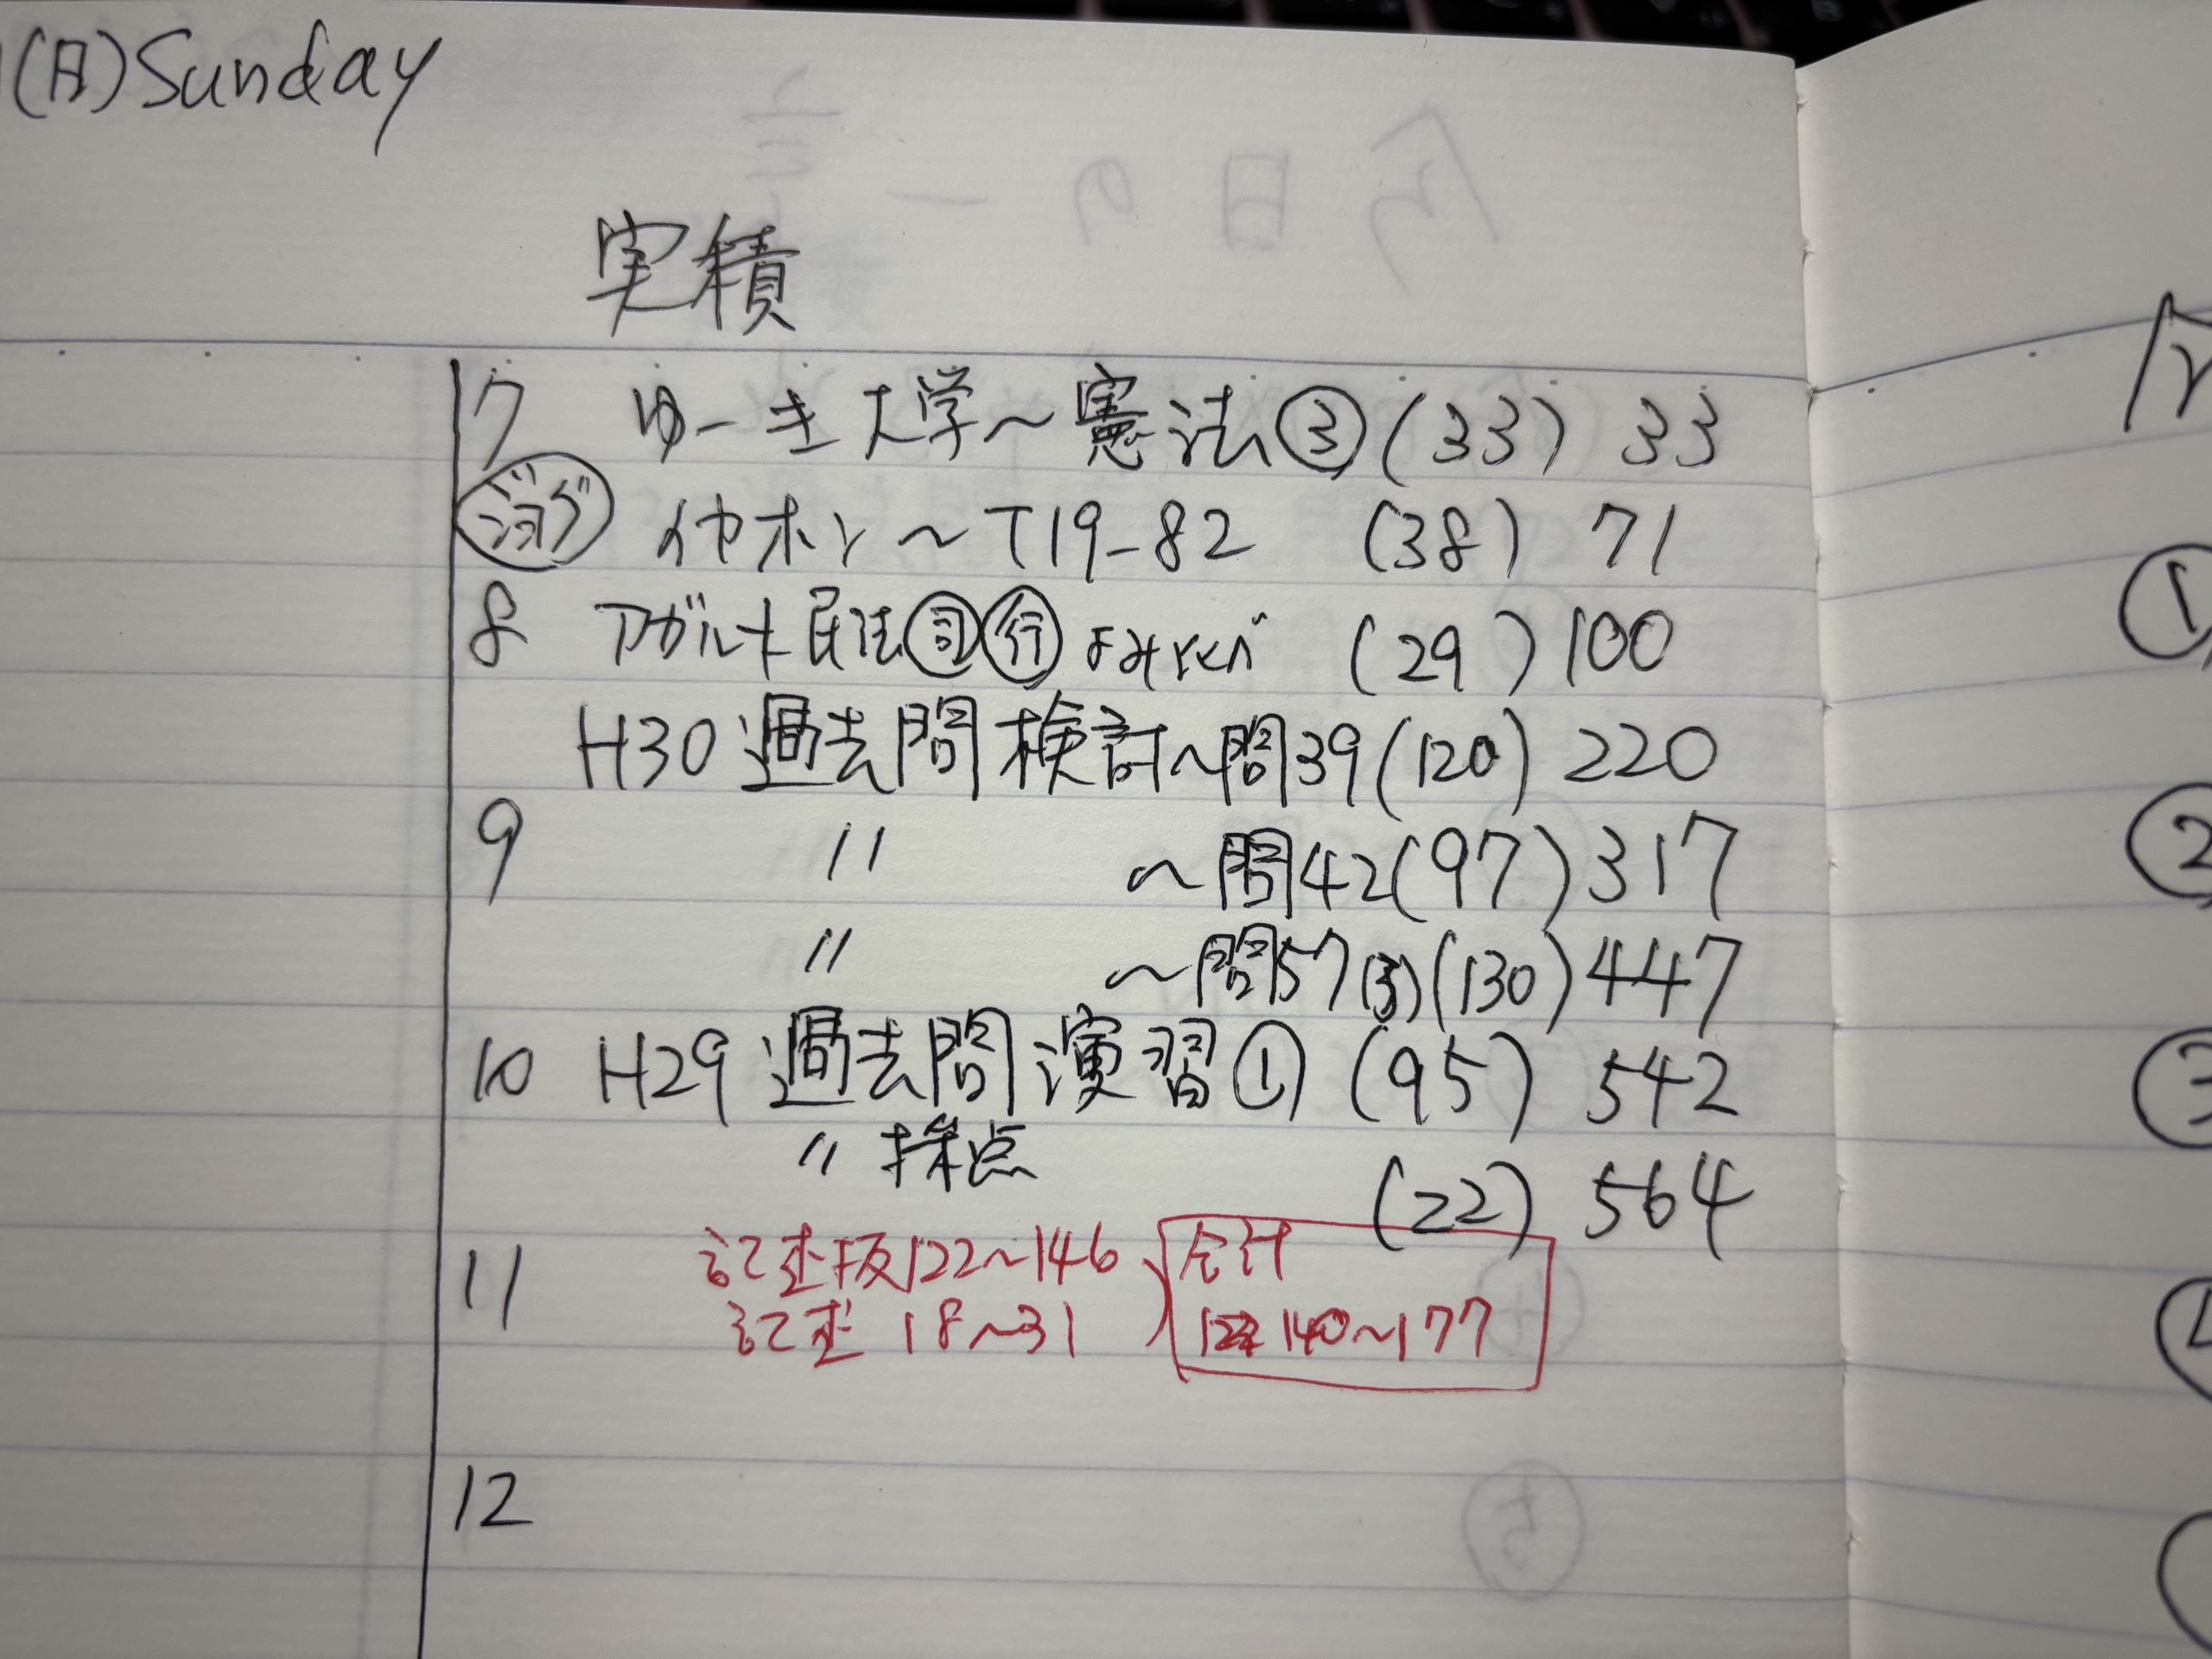 (日) Sunday
実積
7 ゆーき大学〜憲法③(33) 33
ジョグ イヤホン〜T19-82 (38) 71
8 アガルート民法司行 (29) 100
H30過去問検討〜問39(120) 220
9 〃 〜問42(97) 317
〃 〜問57(3)(130) 447
10 H29過去問演習①(95) 542
〃採点
(22) 564
11 記述抜122〜146 合計
記述 18〜31 140〜177
12
①
②
③